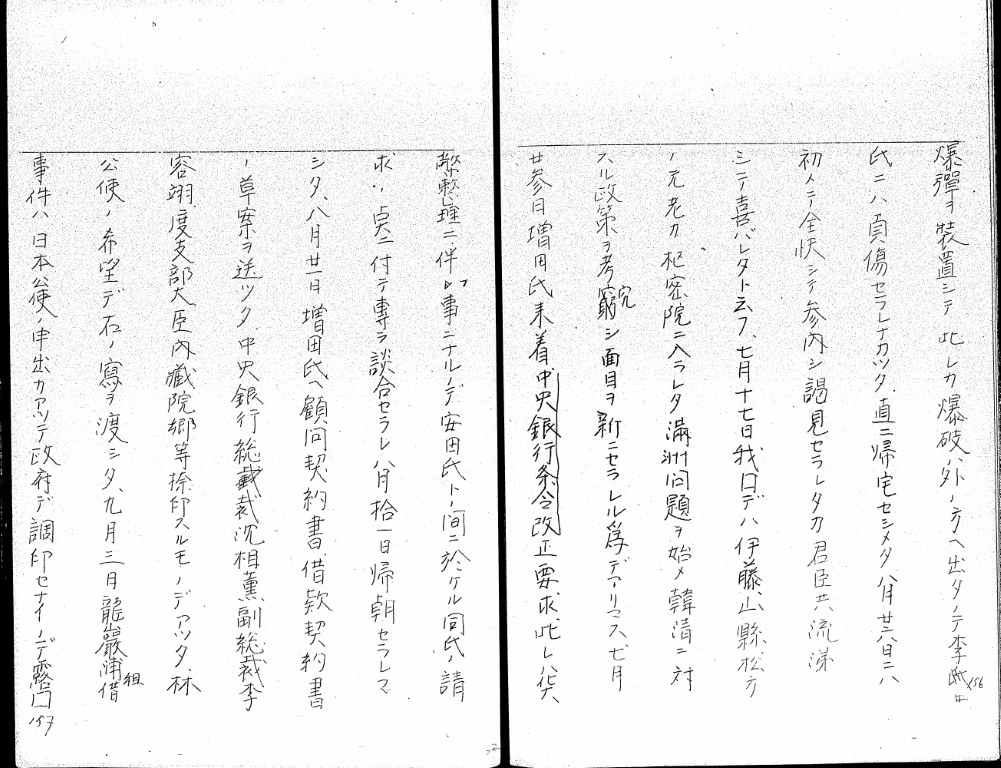 爆彈ヲ装置シテ此レカ爆破ハ外ノ方ヘ出タノテ李氏
156
氏ニハ負傷セラレナカツタ、直ニ帰宅セシメタ八月廿八日ニハ
初メテ全快シテ参内シ謁見セラレタカ君臣共流涕
シテ喜バレタト云フ、七月十七日我口デハ伊藤、山縣、松方
ノ元老カ枢密院ニ入ラレタ滿洲問題ヲ始メ韓清ニ対
スル政策ヲ考窮シ面目ヲ新ニセラレル為デアリマス、七月
究
廿参日増田氏来着中央銀行条令改正要求、此レハ
幣整理ニ伴フ事ニナルノデ安田氏トノ間ニ於ケル同氏ノ請
求ノ点ニ付テ専ラ談合セラレ八月拾一日帰朝セラレマ
シタ、八月廿一日増田氏ヘ顧問契約書借款契約書
ノ草案ヲ送ツタ、中央銀行総裁沈相薫、副総裁李
容翊、度支部大臣内藏院郷等捺印スルモノデアツタ、林
公使ノ希望デ右ノ寫ヲ渡シタ、九月三日龍巖浦借
租
事件ハ日本公使ノ申出カアツテ政府デ調印セナイノデ露口
157